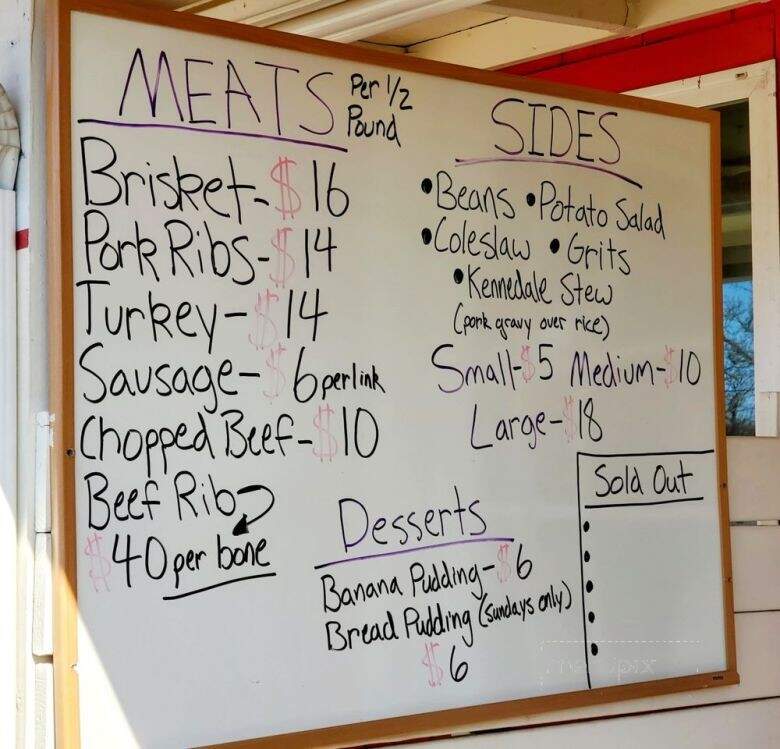 MEATS Per 1/2 Pound
Brisket- $16
Pork Ribs- $14
Turkey- $14
Sausage- $6 per link
Chopped Beef- $10
Beef Rib
$40 per bone
SIDES
•Beans •Potato Salad
•Coleslaw •Grits
•Kennedale Stew
(pork gravy over rice)
Small-$5 Medium-$10
Large-$18
Desserts
Banana Pudding-$6
Bread Pudding (Sundays only)
$6
Sold Out